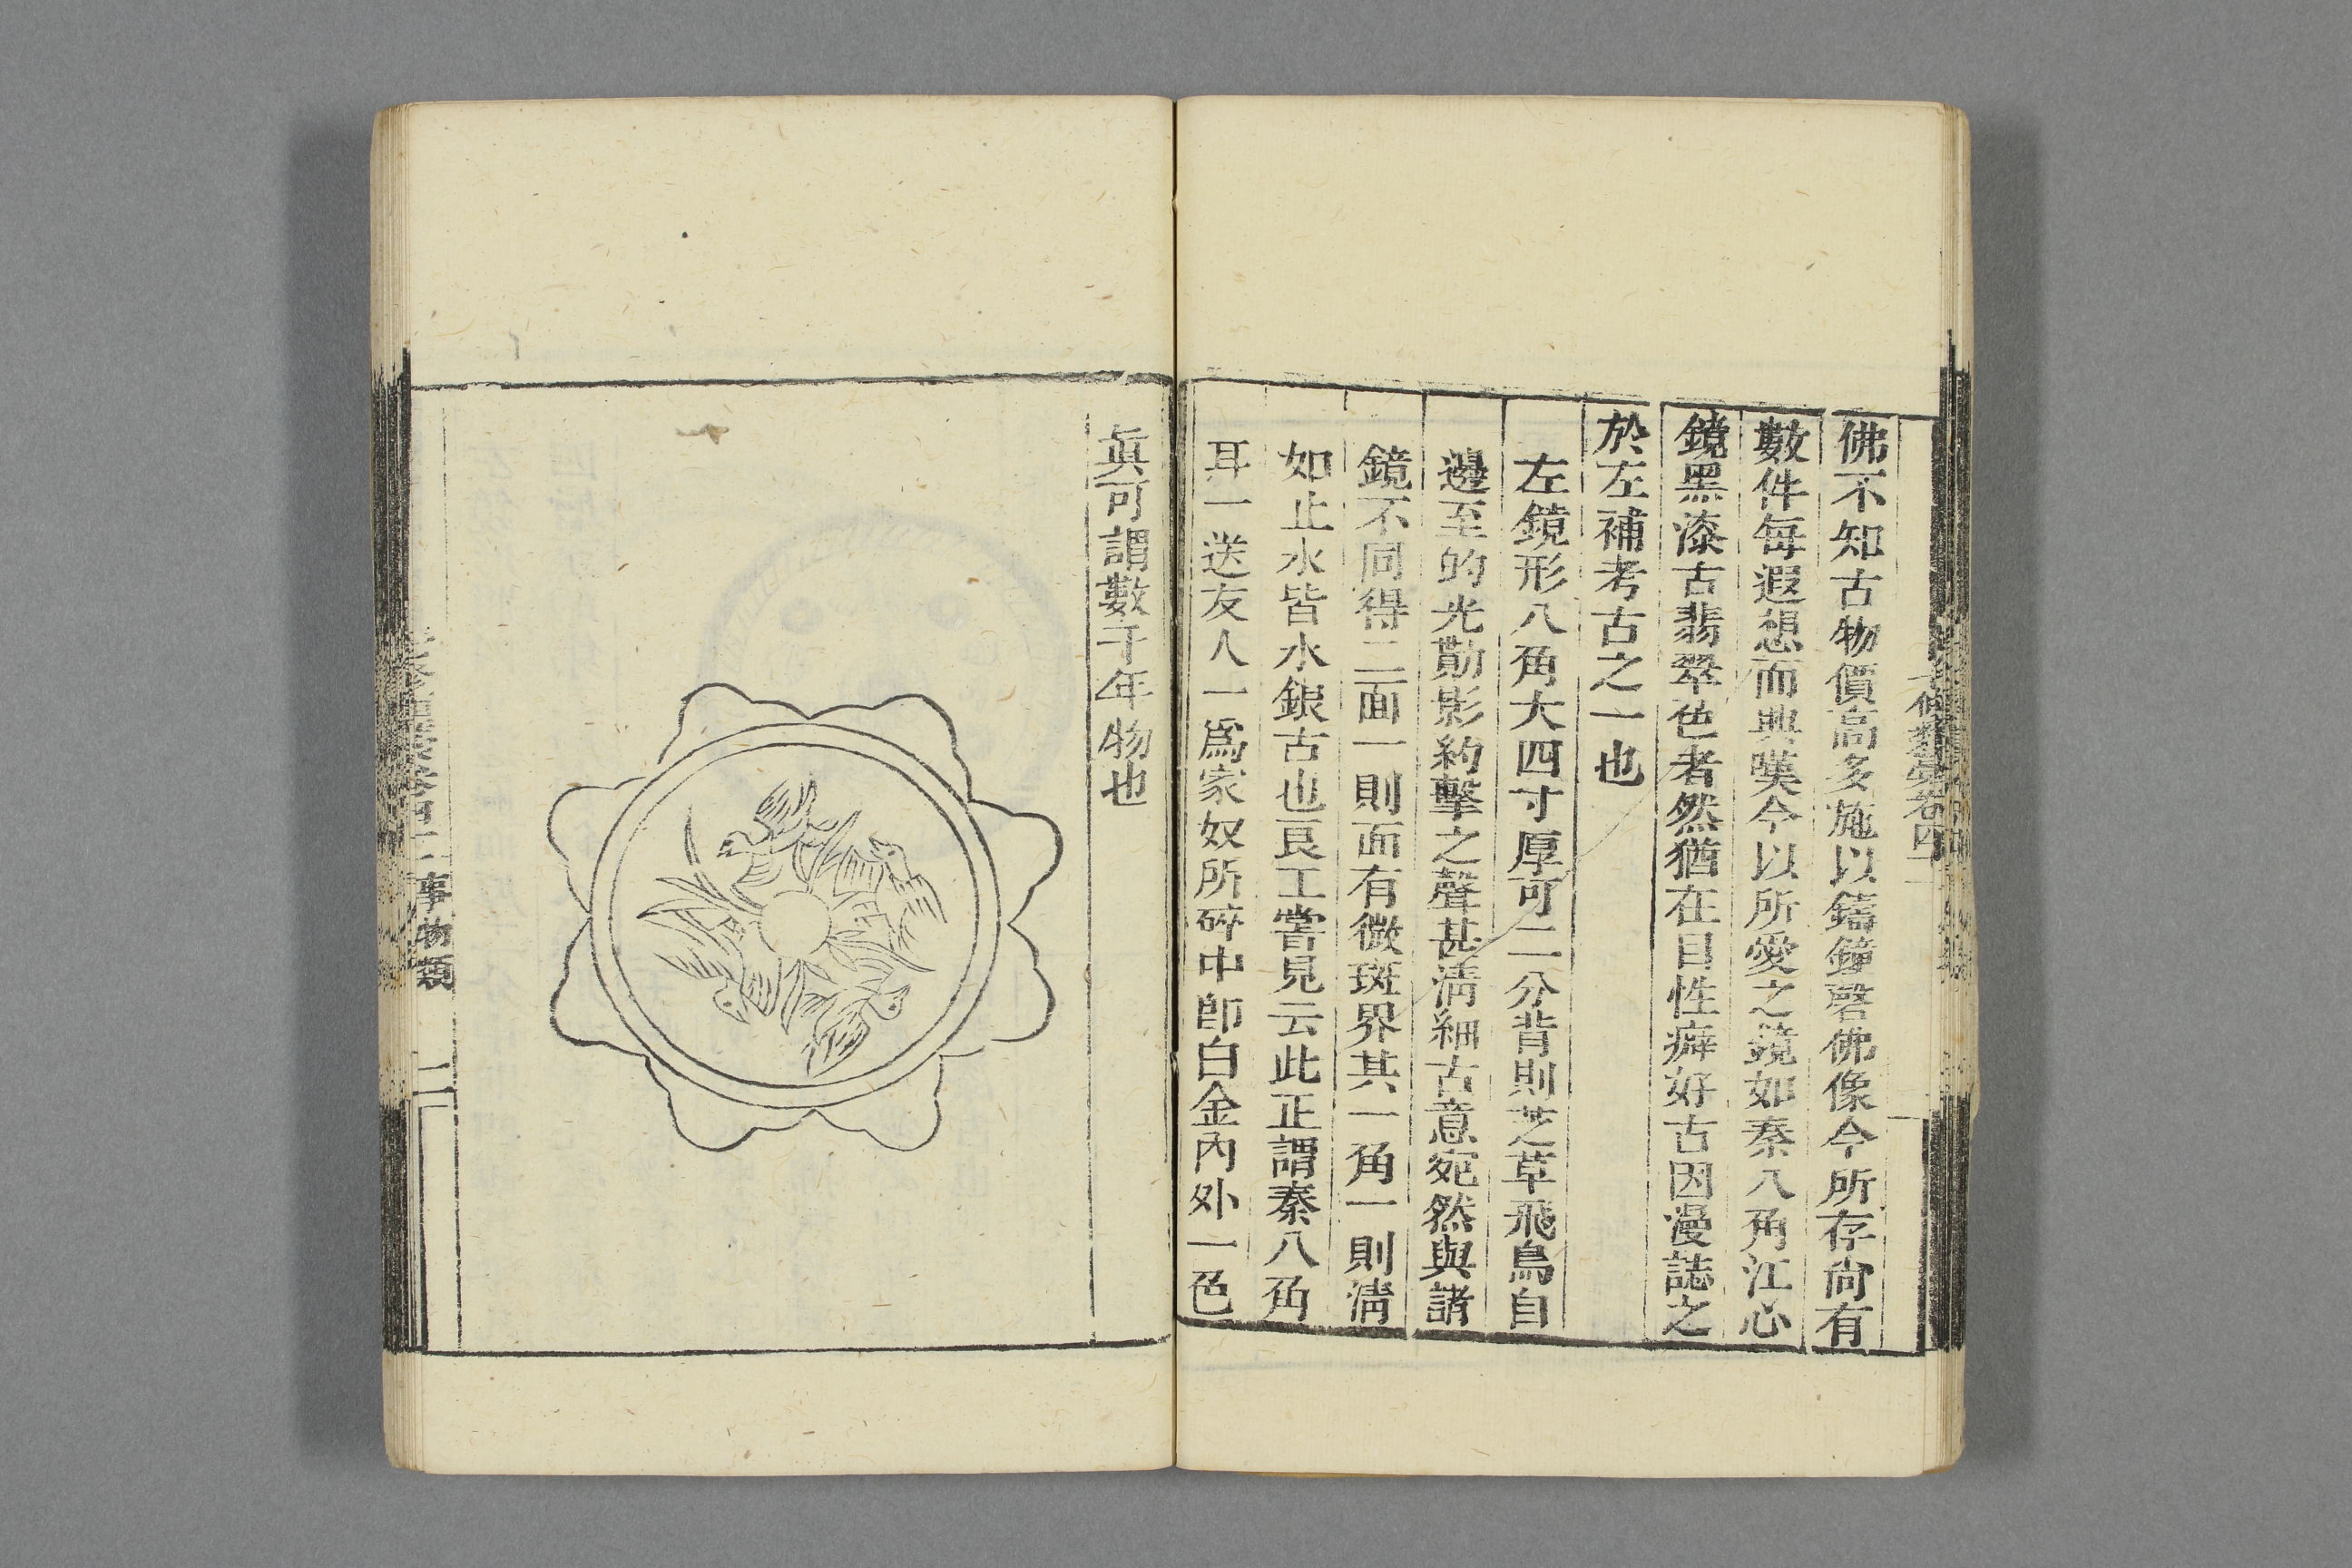 佛不知古物價高多施以鑄鐘磬佛像今所存尙有
數件每遐想而興嘆今以所愛之鏡如秦八角江心
鏡黑漆古翡翠色者然猶在目性癖好古因漫誌之
於左補考古之一也
左鏡形八角大四寸厚可二分背則芝草飛鳥自
邊至的光勩影約擊之聲甚淸細古意宛然與諸
鏡不同得二面一則面有微斑界其一角一則淸
如止水皆水銀古也良工嘗見云此正謂秦八角
耳一送友人一爲家奴所碎中卽白金內外一色
眞可謂數千年物也
七修類藁卷四十二 事物類 二